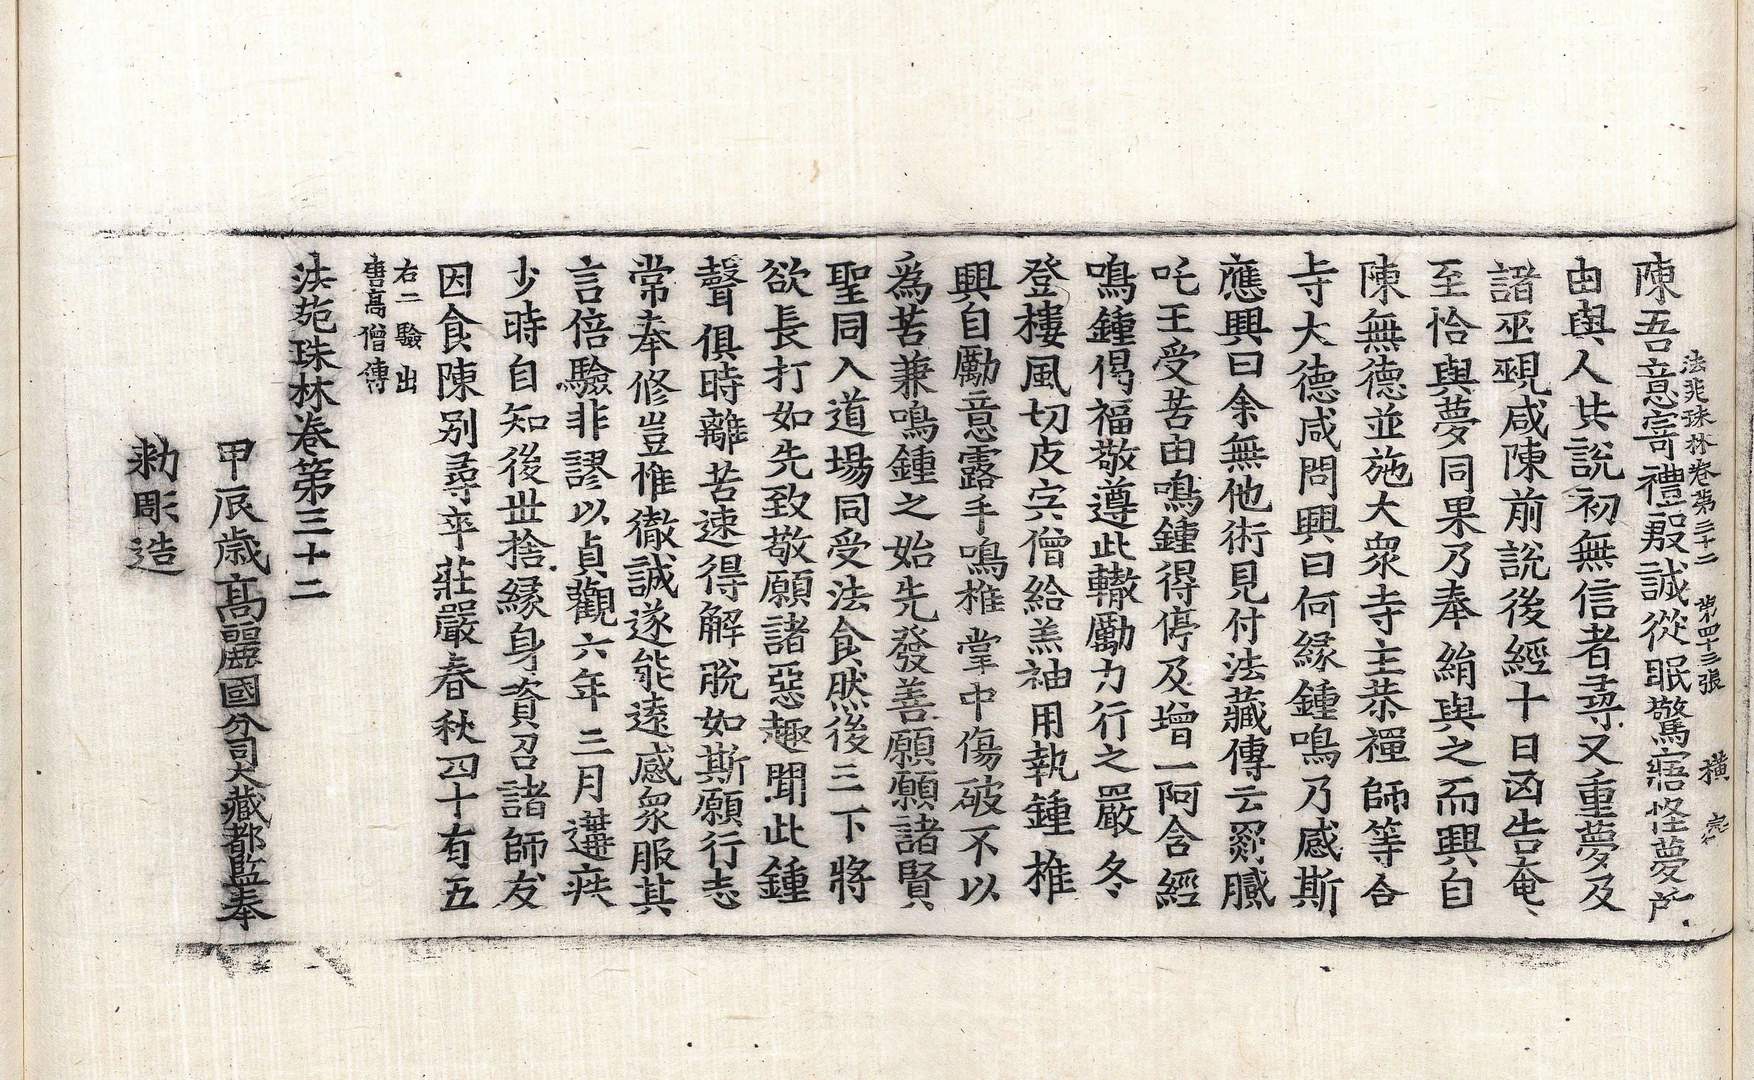 法苑珠林卷第三十二 第四十三張 橫
陳吾意寄禮殷誠從眠驚寤怪夢所
由與人共說初無信者尋又重夢及
諸巫覡咸陳前說後經十日凶告奄
至恰與夢同果乃奉絹與之而興自
陳無德並施大衆寺主恭禪師等合
寺大德咸問興曰何緣鍾鳴乃感斯
應興曰余無他術見付法藏傳云罽膩
吒王受苦由鳴鍾得停及增一阿含經
鳴鍾偈福敬遵此轍勵力行之嚴冬
登樓風切皮宍僧給羔袖用執鍾椎
興自勵意露手鳴椎掌中傷破不以
爲苦兼鳴鍾之始先發善願願諸賢
聖同入道場同受法食然後三下將
欲長打如先致敬願諸惡趣聞此鍾
聲俱時離苦速得解脫如斯願行志
常奉修豈惟徹誠遂能遠感衆服其
言倍驗非謬以貞觀六年三月遘疾
少時自知後世捨緣身資召諸師友
因食陳别尋卒莊嚴春秋四十有五
右二驗出
唐高僧傳
法苑珠林卷第三十二
甲辰歲高麗國分司大藏都監奉
勅彫造